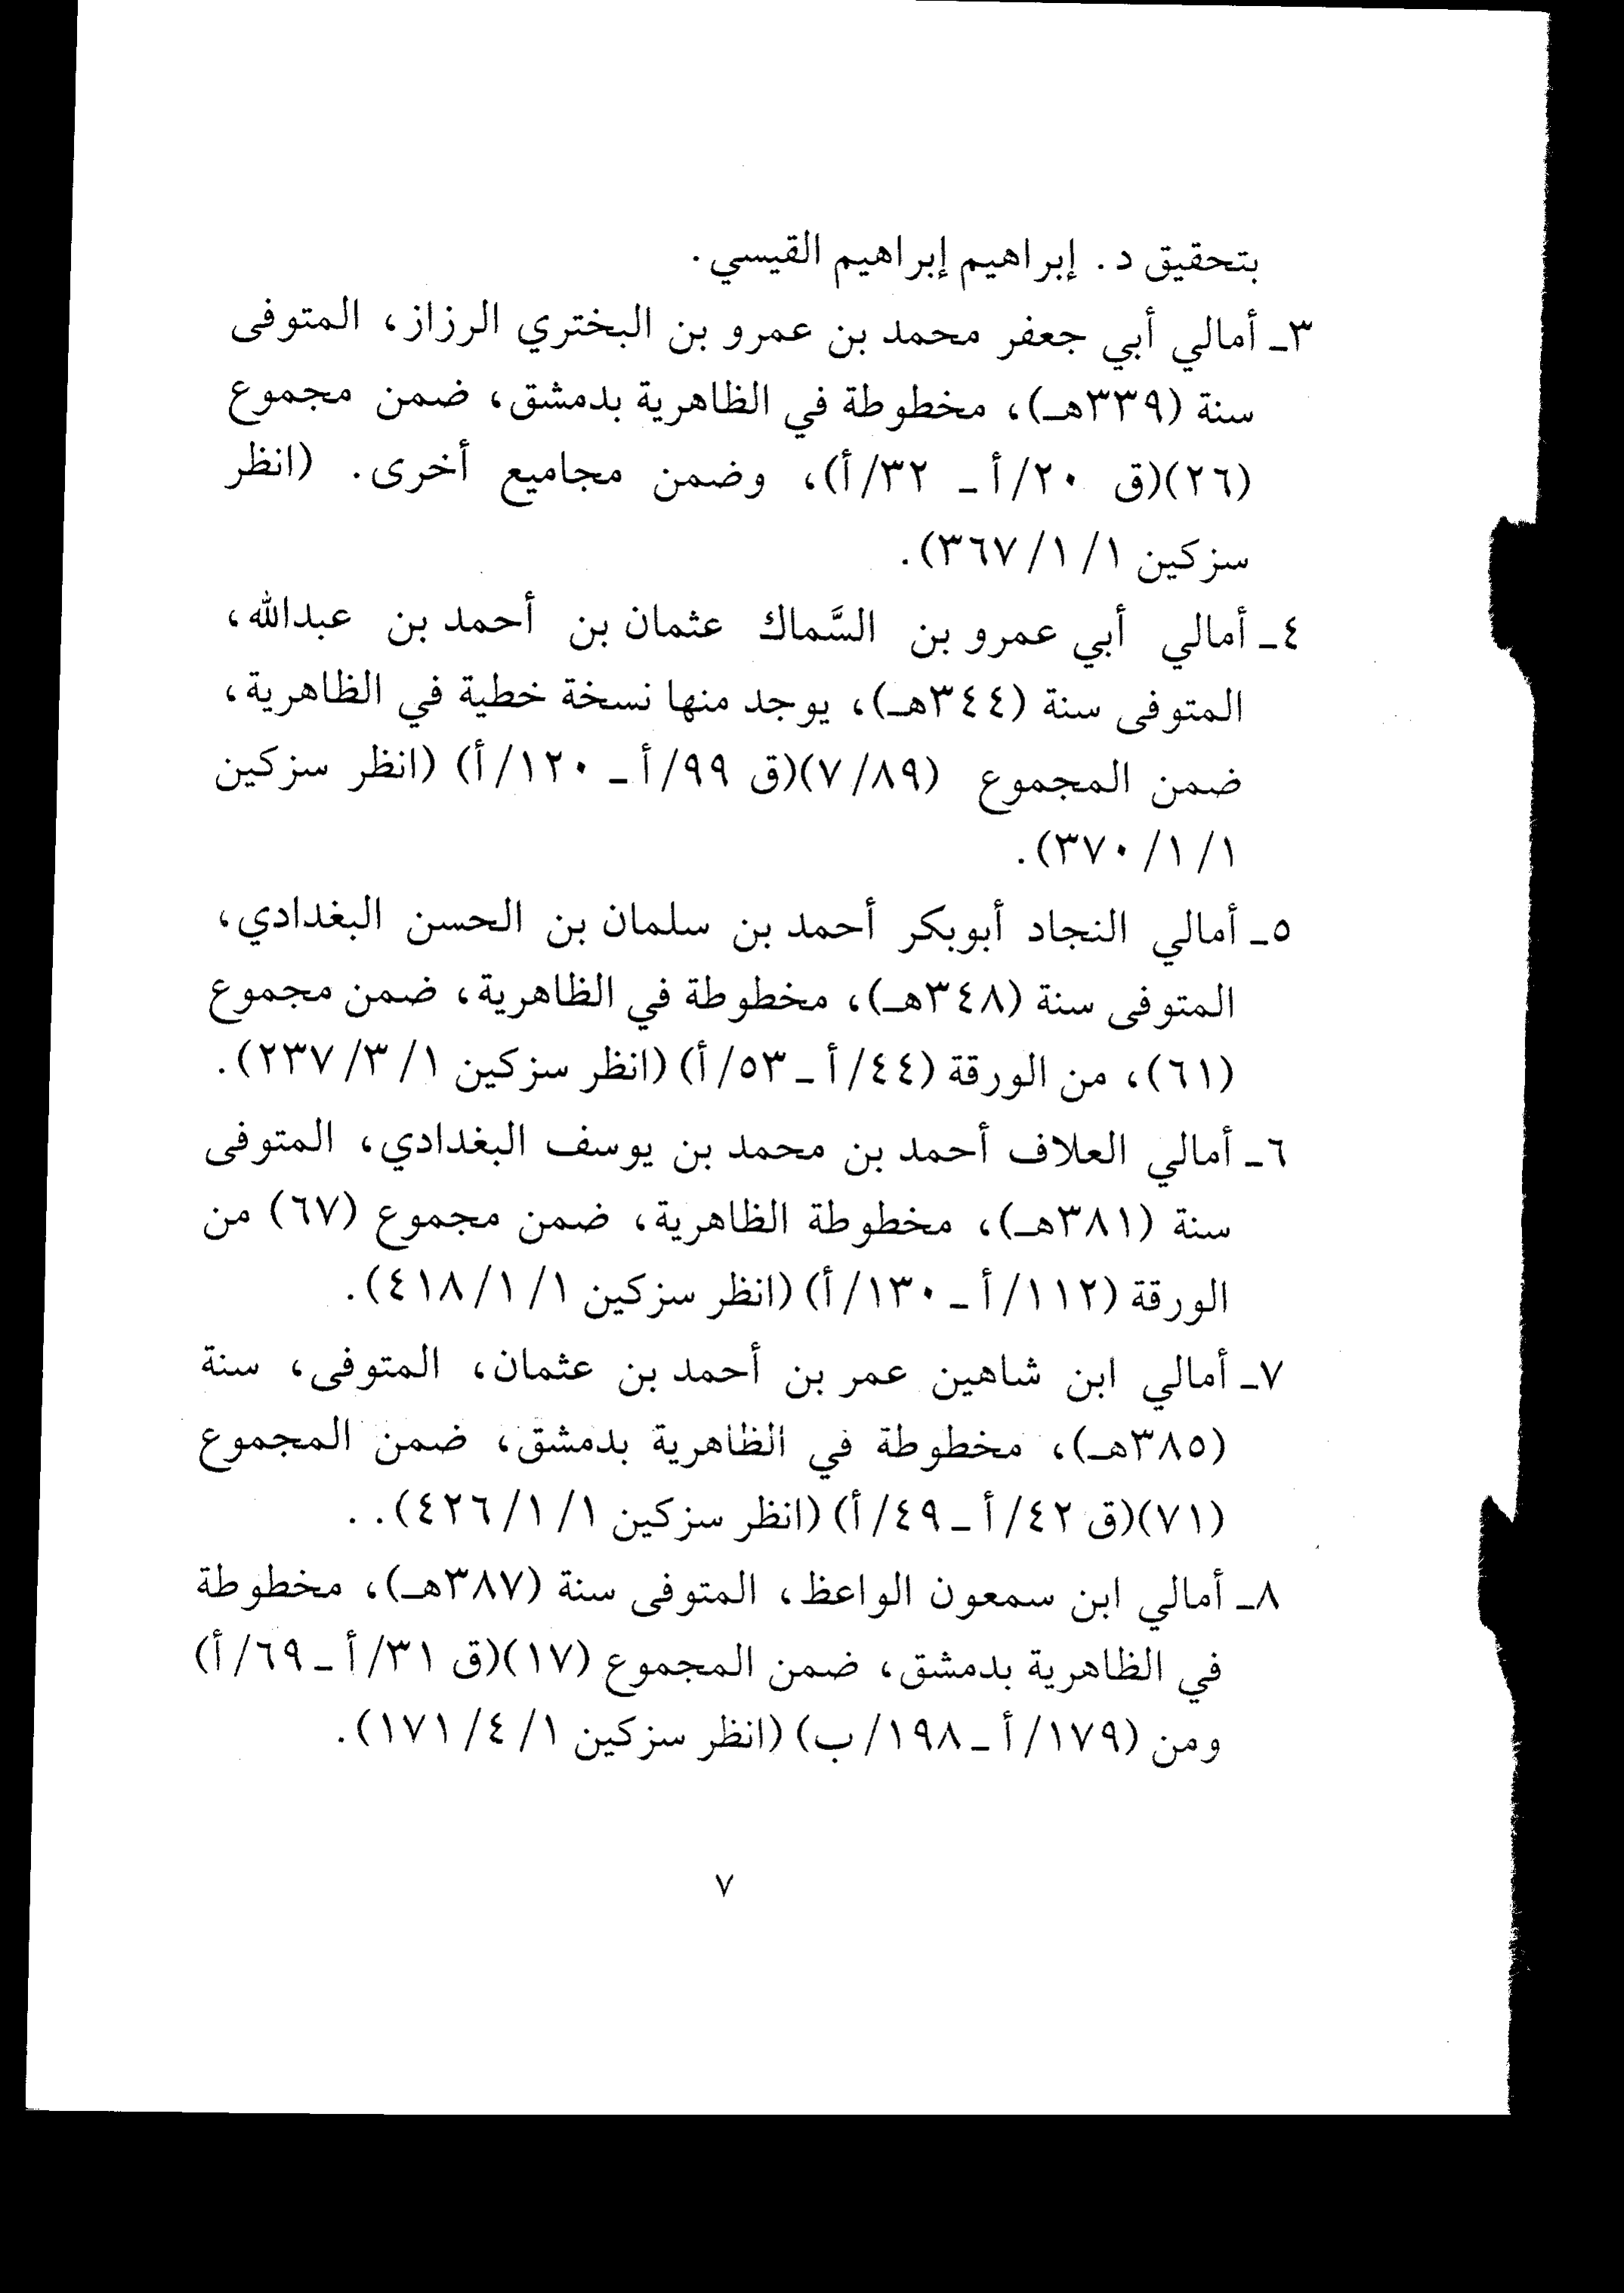 بتحقيق د. إبراهيم إبراهيم القيسي.
٣ـ أمالي أبي جعفر محمد بن عمرو بن البختري الرزاز، المتوفى
سنة (٣٣٩هـ)، مخطوطة في الظاهرية بدمشق، ضمن مجموع
(٢٦)(ق ٢٠/أ ـ ٣٢/أ)، وضمن مجاميع أخرى. (انظر
سزكين ١/ ١/ ٣٦٧).
٤ـ أمالي أبي عمرو بن السَّماك عثمان بن أحمد بن عبدالله،
المتوفى سنة (٣٤٤هـ)، يوجد منها نسخة خطية في الظاهرية،
ضمن المجموع (٧/٨٩)(ق ٩٩/أ ـ ١٢٠/أ) (انظر سزكين
١/ ١/ ٣٧٠).
٥ـ أمالي النجاد أبوبكر أحمد بن سلمان بن الحسن البغدادي،
المتوفى سنة (٣٤٨هـ)، مخطوطة في الظاهرية، ضمن مجموع
(٦١)، من الورقة (٤٤/أ ـ ٥٣/أ) (انظر سزكين ١/ ٣/ ٢٣٧).
٦ـ أمالي العلاف أحمد بن محمد بن يوسف البغدادي، المتوفى
سنة (٣٨١هـ)، مخطوطة الظاهرية، ضمن مجموع (٦٧) من
الورقة (١١٢/أ ـ ١٣٠/أ) (انظر سزكين ١/ ١/ ٤١٨).
٧ـ أمالي ابن شاهين عمر بن أحمد بن عثمان، المتوفى، سنة
(٣٨٥هـ)، مخطوطة في الظاهرية بدمشق، ضمن المجموع
(٧١)(ق ٤٢/أ ـ ٤٩/أ) (انظر سزكين ١/ ١/ ٤٢٦). .
٨ـ أمالي ابن سمعون الواعظ، المتوفى سنة (٣٨٧هـ)، مخطوطة
في الظاهرية بدمشق، ضمن المجموع (١٧)(ق ٣١/أ ـ ٦٩/أ)
ومن (١٧٩/أ ـ ١٩٨/ب) (انظر سزكين ١/ ٤/ ١٧١).
٧